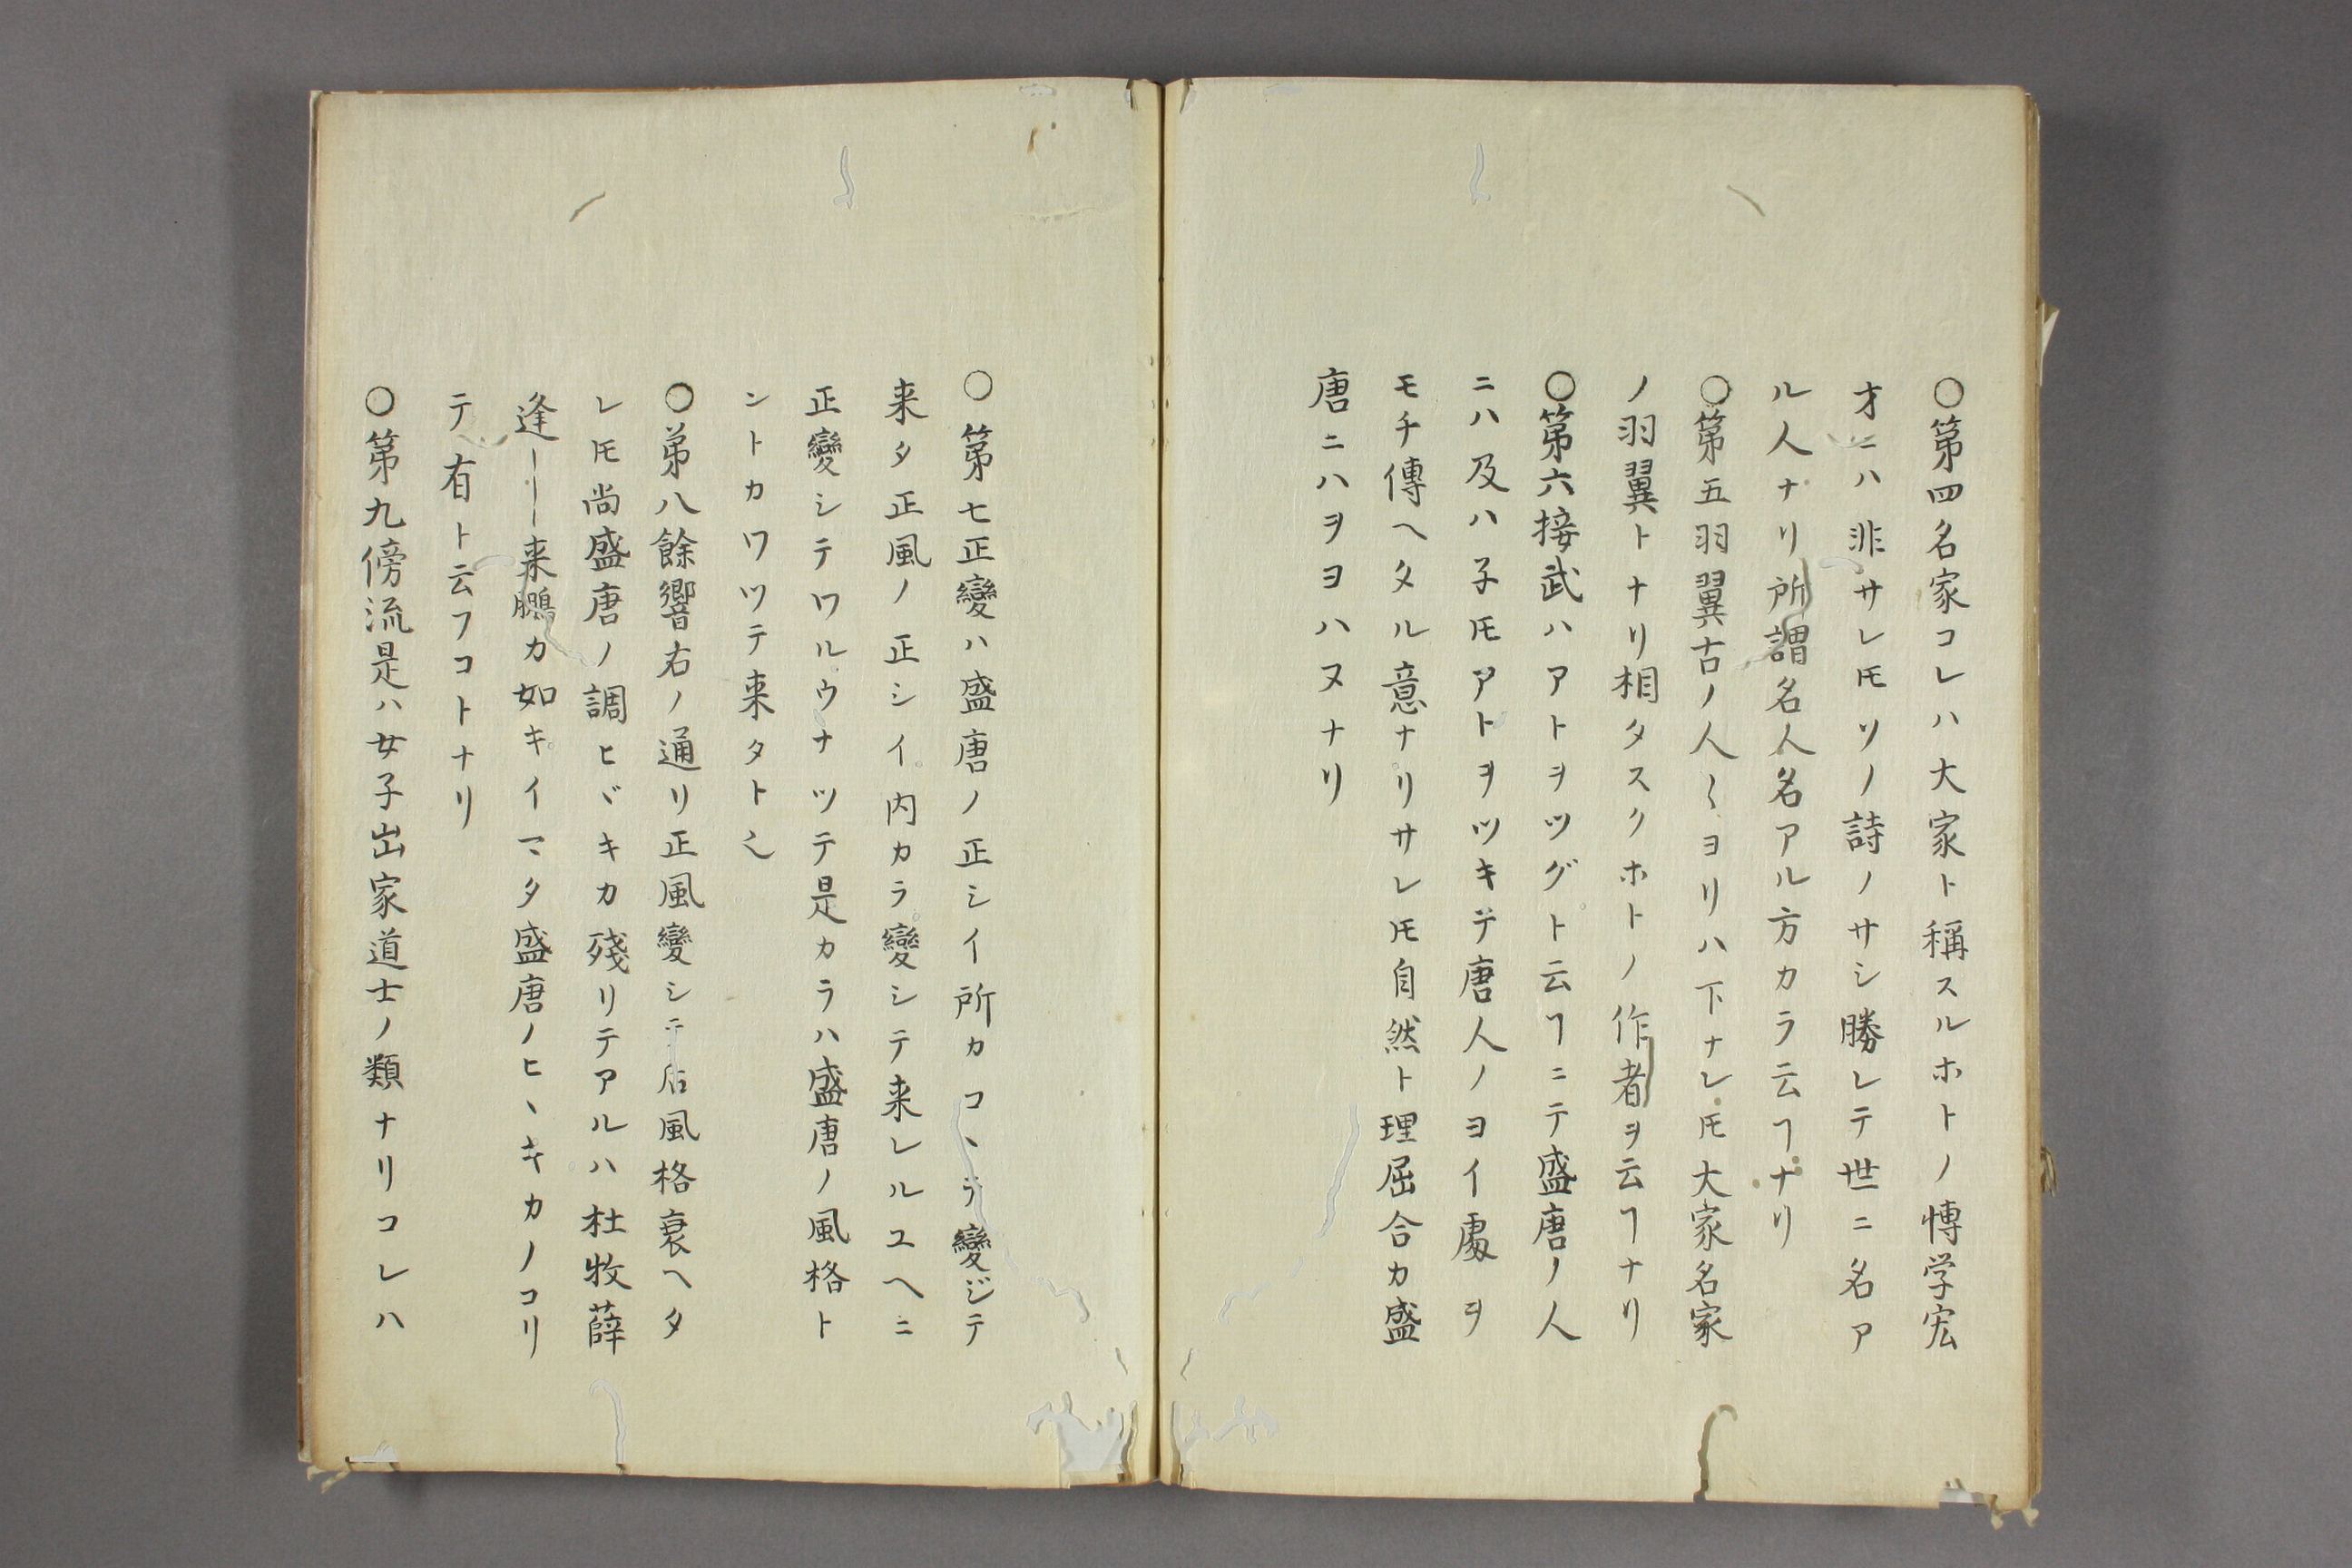 ○第四名家コレハ大家ト稱スルホトノ博学宏
才ニハ非サレ𪜈ソノ詩ノサシ勝レテ世ニ名ア
ル人ナリ所謂名人名アル方カラ云ヿナリ
○第五羽翼古ノ人〱ヨリハ下ナレ𪜈大家名家
ノ羽翼トナリ相タスクホトノ作者ヲ云ヿナリ
○第六接武ハアトヲツグト云ヿニテ盛唐ノ人
ニハ及ハ子𪜈アトヲツキデ唐人ノヨイ處ヲ
モチ傳ヘタル意ナリサレ𪜈自然ト理屈合カ盛
唐ニハヲヨハヌナリ
○第七正變ハ盛唐ノ正シイ所カコヽラ變ジテ
来タ正風ノ正シイ内カラ變シテ来レルユヘニ
正變シテワルウナツテ是カラハ盛唐ノ風格ト
ントカワツテ来タト〻
○第八餘響右ノ通リ正風變シテ后風格衰ヘタ
レ𪜈尚盛唐ノ調ヒヾキカ殘リテアルハ杜牧薛
逢｜｜来鵬カ如キイマタ盛唐ノヒヽキカノコリ
テ有ト云フコトナリ
○第九傍流是ハ女子出家道士ノ類ナリコレハ